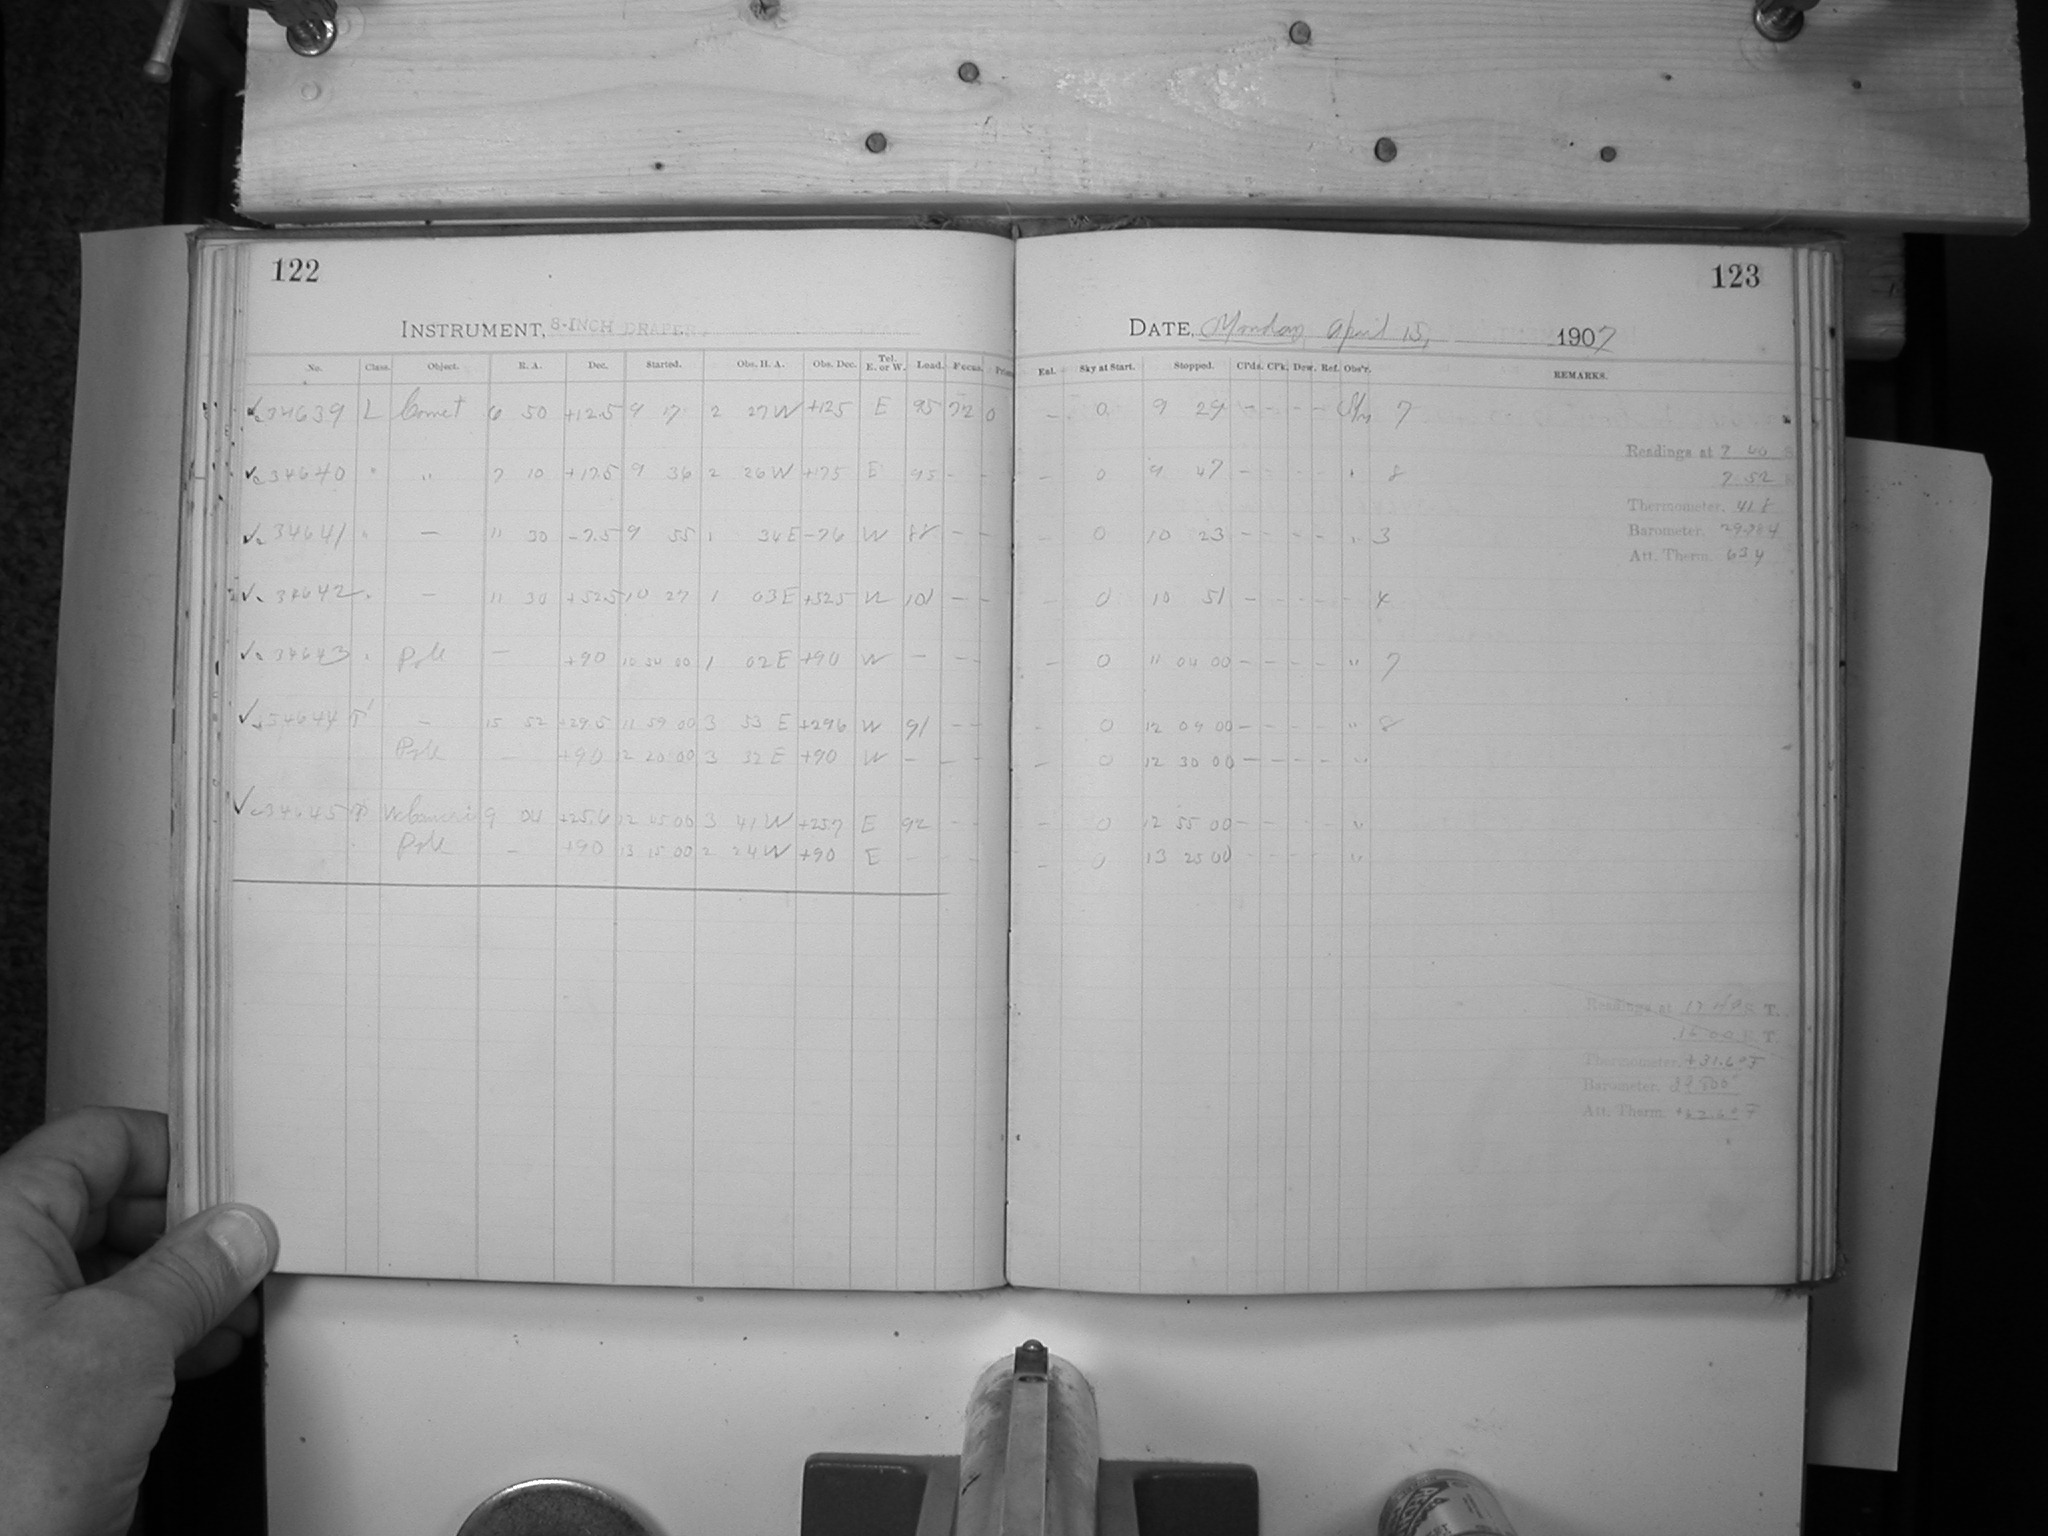 122
INSTRUMENT, 8-INCH DRAPER.
No. Class. Object. R. A. Dec. Started. Obs. H. A. Obs. Dec. Tel. E. or W. Load. Focus. Prism
34639 L Comet 6 50 +12.5 9 17 2 27 W +125 E 95 72 0
34640 " " 7 10 +17.5 9 36 2 26 W +175 E 95 - -
34641 " — 11 30 -7.5 9 55 1 36 E -76 W 88 - -
34642 " — 11 30 +52.5 10 27 1 03 E +525 W 101 - -
34643 " Pole — +90 10 54 00 1 02 E +90 W - - -
34644 — 15 52 +29.5 11 59 00 3 53 E +296 W 91 - -
Pole — +90 12 20 00 3 32 E +90 W - - -
34645 9 04 +25.6 12 45 00 3 41 W +257 E 92 - -
Pole — +90 13 15 00 2 24 W +90 E - - -
123
DATE, Monday April 15, 1907
Enl. Sky at Start. Stopped. Cl'ds. Cl'k. Dew. Ref. Obs'r. REMARKS.
- 0 9 29 - - - - 7
- 0 9 47 - - - - " 8
- 0 10 23 - - - - " 3
- 0 10 51 - - - - 4
- 0 11 04 00 - - - - " 7
- 0 12 09 00 - - - - " 8
- 0 12 30 00 - - - - "
- 0 12 55 00 - - - - "
- 0 13 25 00 - - - - "
Readings at 7 40 S
7 52
Thermometer. 41.8
Barometer.
Att. Therm. 63.4
Readings at S T.
T.
Thermometer. +31.6° F
Barometer.
Att. Therm.